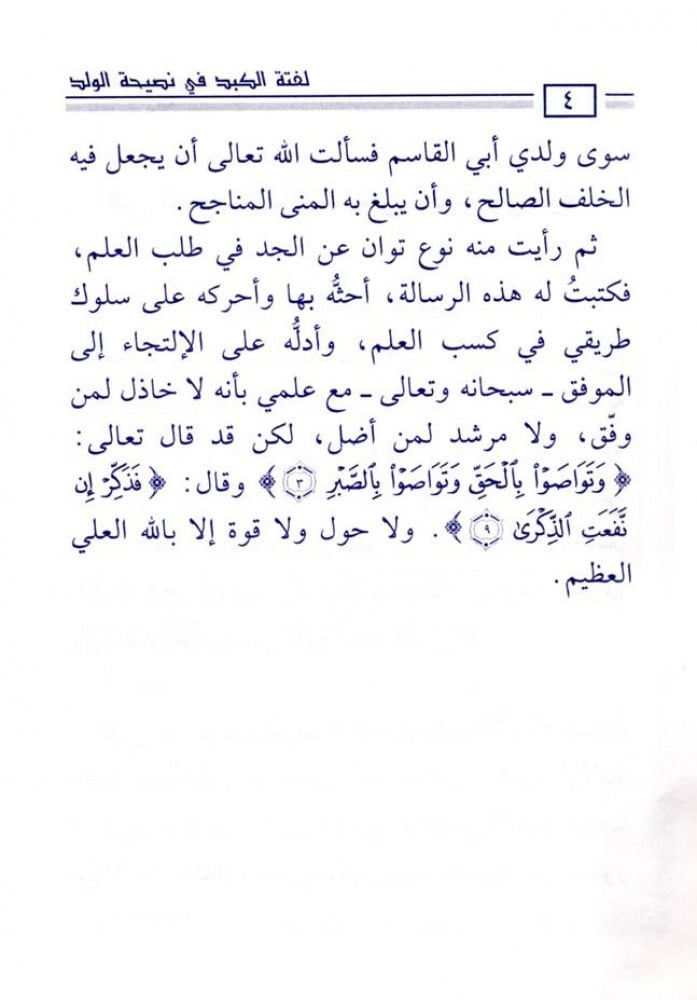 لفتة الكبد في نصيحة الولد
٤
سوى ولدي أبي القاسم فسألت الله تعالى أن يجعل فيه
الخلف الصالح، وأن يبلغ به المنى المناجح.
ثم رأيت منه نوع توان عن الجد في طلب العلم،
فكتبتُ له هذه الرسالة، أحثُّه بها وأحركه على سلوك
طريقي في كسب العلم، وأدلُّه على الإلتجاء إلى
الموفق ـ سبحانه وتعالى ـ مع علمي بأنه لا خاذل لمن
وفّق، ولا مرشد لمن أضل، لكن قد قال تعالى:
﴿وَتَوَاصَوۡاْ بِٱلۡحَقِّ وَتَوَاصَوۡاْ بِٱلصَّبۡرِ ٣﴾ وقال: ﴿فَذَكِّرۡ إِن
نَّفَعَتِ ٱلذِّكۡرَىٰ ٩﴾. ولا حول ولا قوة إلا بالله العلي
العظيم.